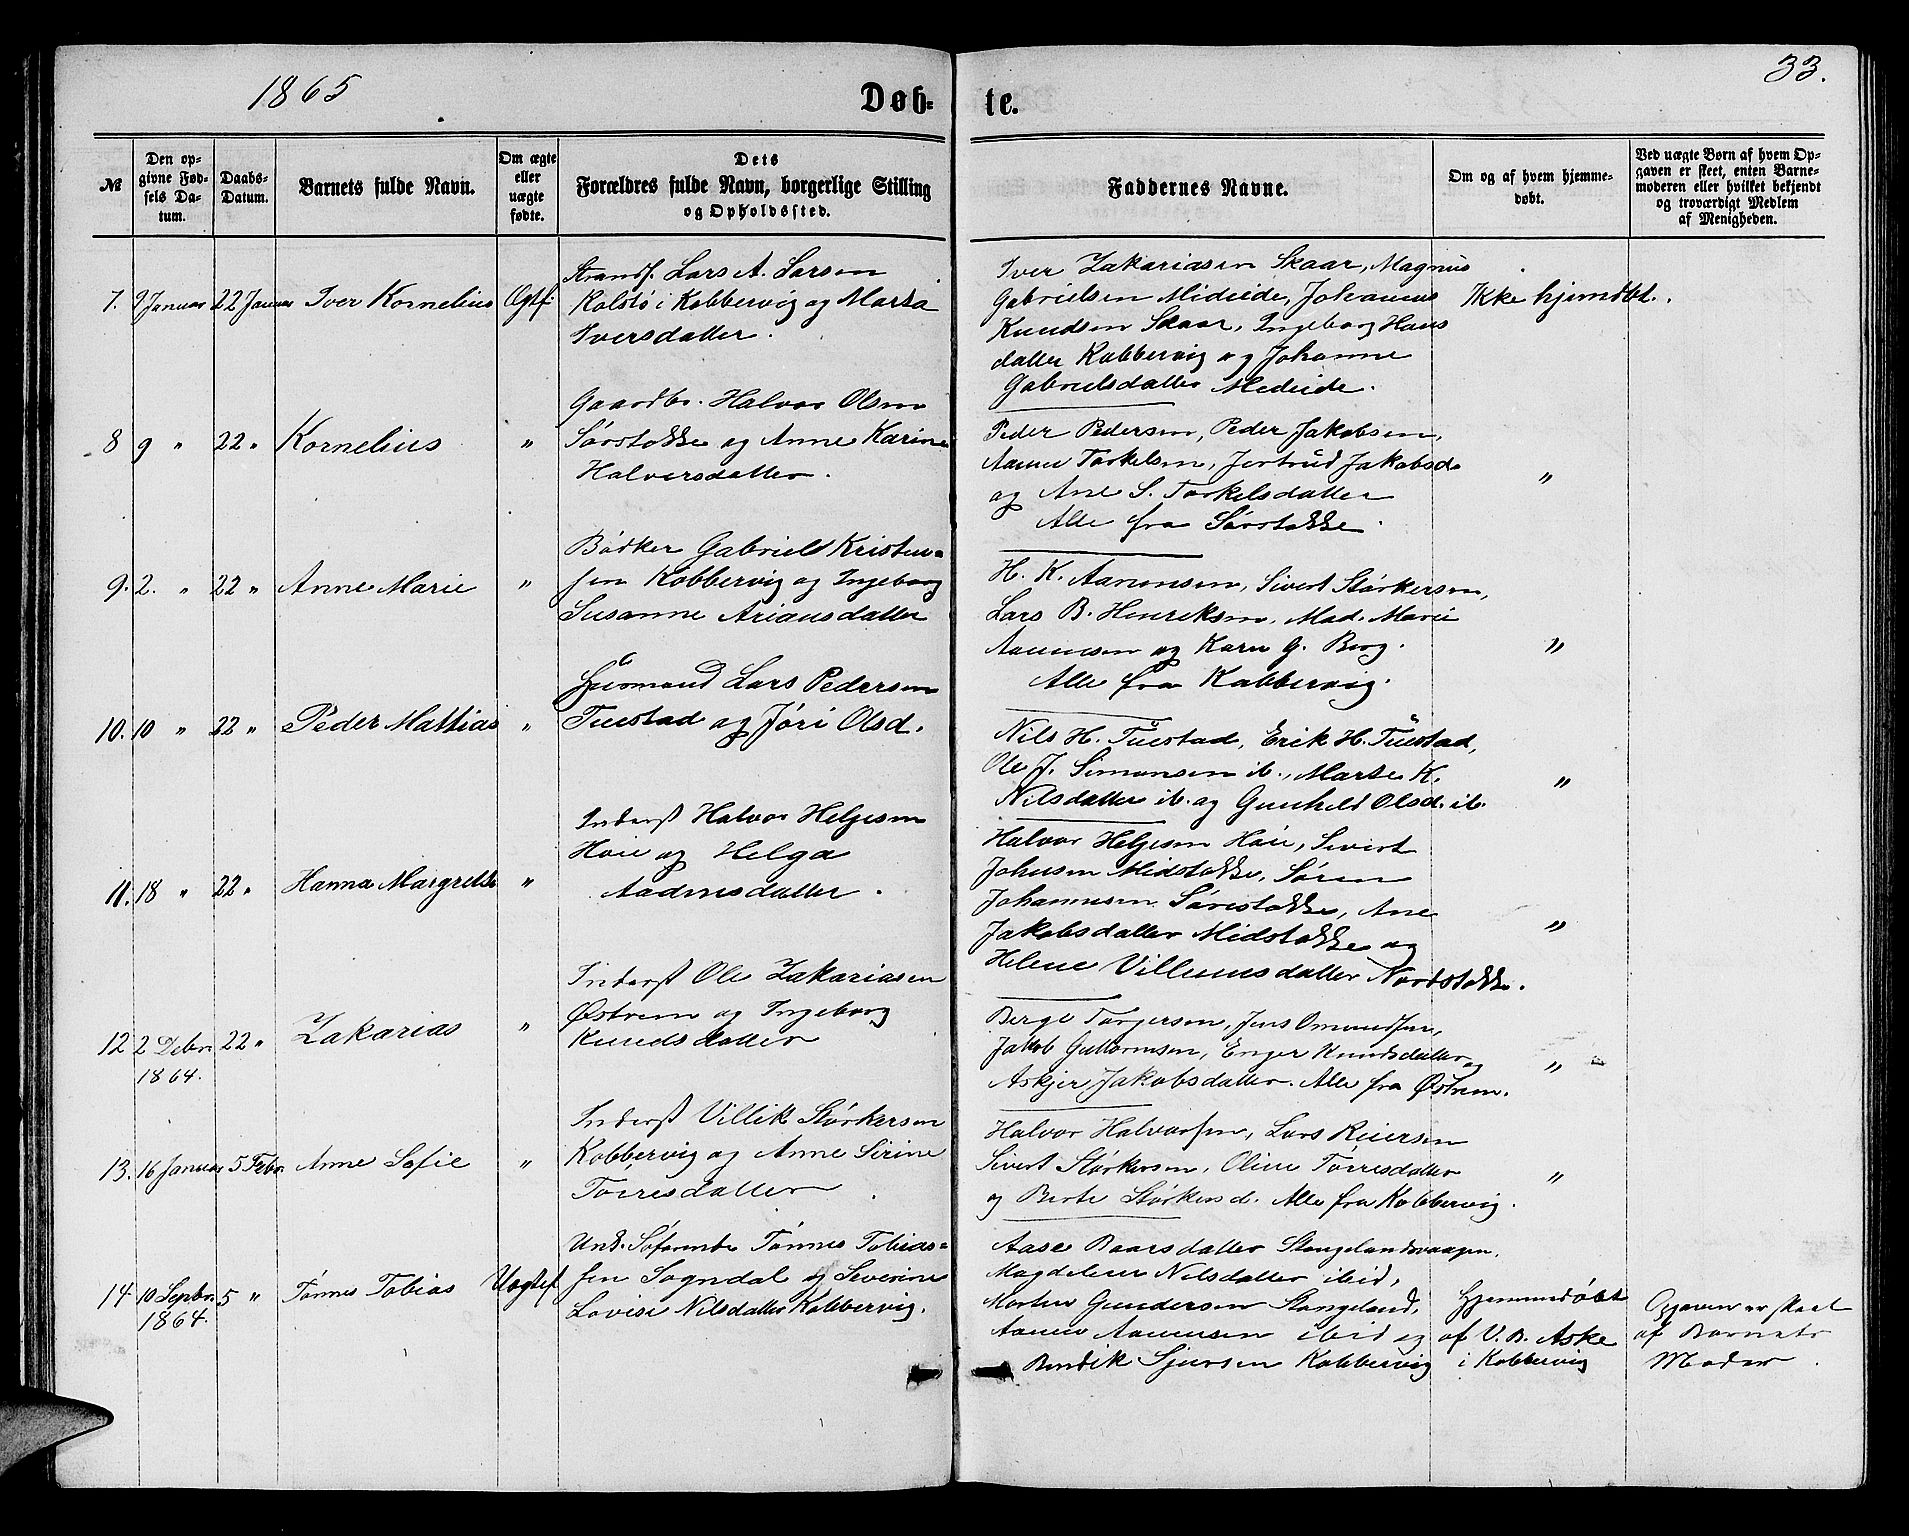 1865
Døb-
te.
33.
№
Den op-
givne Fød-
sels Da-
tum.
Daabs-
Datum.
Barnets fulde Navn.
Om ægte
eller
uægte
fødte.
Dets
Forældres fulde Navn, borgerlige Stilling
og Opholdssted.
Faddernes Navne.
Om og af hvem hjemme-
døbt.
Ved uægte Børn af hvem Op-
gaven er skeet, enten Barne-
moderen eller hvilket bekjendt
og troværdigt Medlem
af Menigheden.
7. 9 Januar 22 Januar Iver Kornelius Ægtf.
Strands. Lars A. Larsen
Kolstø i Kobbervig og Marta
Iversdatter.
Iver Zakariasen Skaar, Magnus
Gabrielsen Mideide, Johannes
Knudsen Skaar, Ingeborg Hans
datter Kobbervig og Johanne
Gabrielsdatter Medeide.
Ikke hjemdbt.
8 9 " 22 " Kornelius "
Gaardbr. Halvor Olsen
Sørstokke og Anne Karine
Halversdatter.
Peder Pedersen, Peder Jakobsen,
Aanen Torkelsen, Jertrud Jakobsd.
og Ane S. Torkelsdatter
Alle fra Sørstokke.
"
9. 2. " 22 " Anne Marie "
Bödker Gabriel Kristen-
sen Kobbervig og Ingeborg
Susanne Ariansdatter
H. K. Aanensen, Sivert Størkersen,
Lars B. Henriksen, Mad. Marie
Aanensen og Karn G. Berg.
Alle fra Kobbervig.
"
10. 10 " 22 " Peder Mattias "
Huusmand Lars Pedersen
Tuestad og Jøri Olsd.
Nils H. Tuestad, Erik H. Tuestad,
Ole J. Simonsen ib., Marte K.
Nilsdatter ib. og Gunhild Olsd. ib.
"
11. 18 " 22 " Hanna Margrette "
Inderst Halvor Helgesen
Høie og Helga
Aadnesdatter.
Halvor Helgesen Høie, Sivert
Johnsen Midstokke, Søren
Johannesen Sørestokke, Ane
Jakobsdatter Midstokke og
Helene Villumsdatter Nordstokke.
"
12 2 Debr. 22 " Zakarias "
1864.
Inderst Ole Zakariasen
Østrem og Ingeborg
Knudsdatter
Berge Torgersen, Jens Omundsen,
Jakob Guttormsen, Enger Knudsdatter og
Askjer Jakobsdatter. Alle fra Østrem.
"
13. 16 Januar 5 Febr. Anne Sofie "
Inderst Villik Størkersen
Kobbervig og Anne Sirine
Tørresdatter.
Halvor Halvorsen, Lars Reiersen
Sivert Størkersen, Oline Tørresdatter
og Berte Størkersd. Alle fra Kobbervig.
"
14 10 Septbr. 5 " Tønnes Tobias Uægtef.
1864.
Und. Söfarende Tønnes Tobias-
sen Sogndal og Severine
Lovise Nilsdatter Kobbervig.
Aase Baarsdatter Stangelandsvaagen,
Magdelene Nilsdatter ibid,
Morten Gundersen Stangeland,
Aanen Aanensen ibid og
Bendik Sjursen Kobbervig
Hjemmedøbt
af V. B. Aske
i Kobbervig
Opgaven er skeet
af Barnets
Moder.